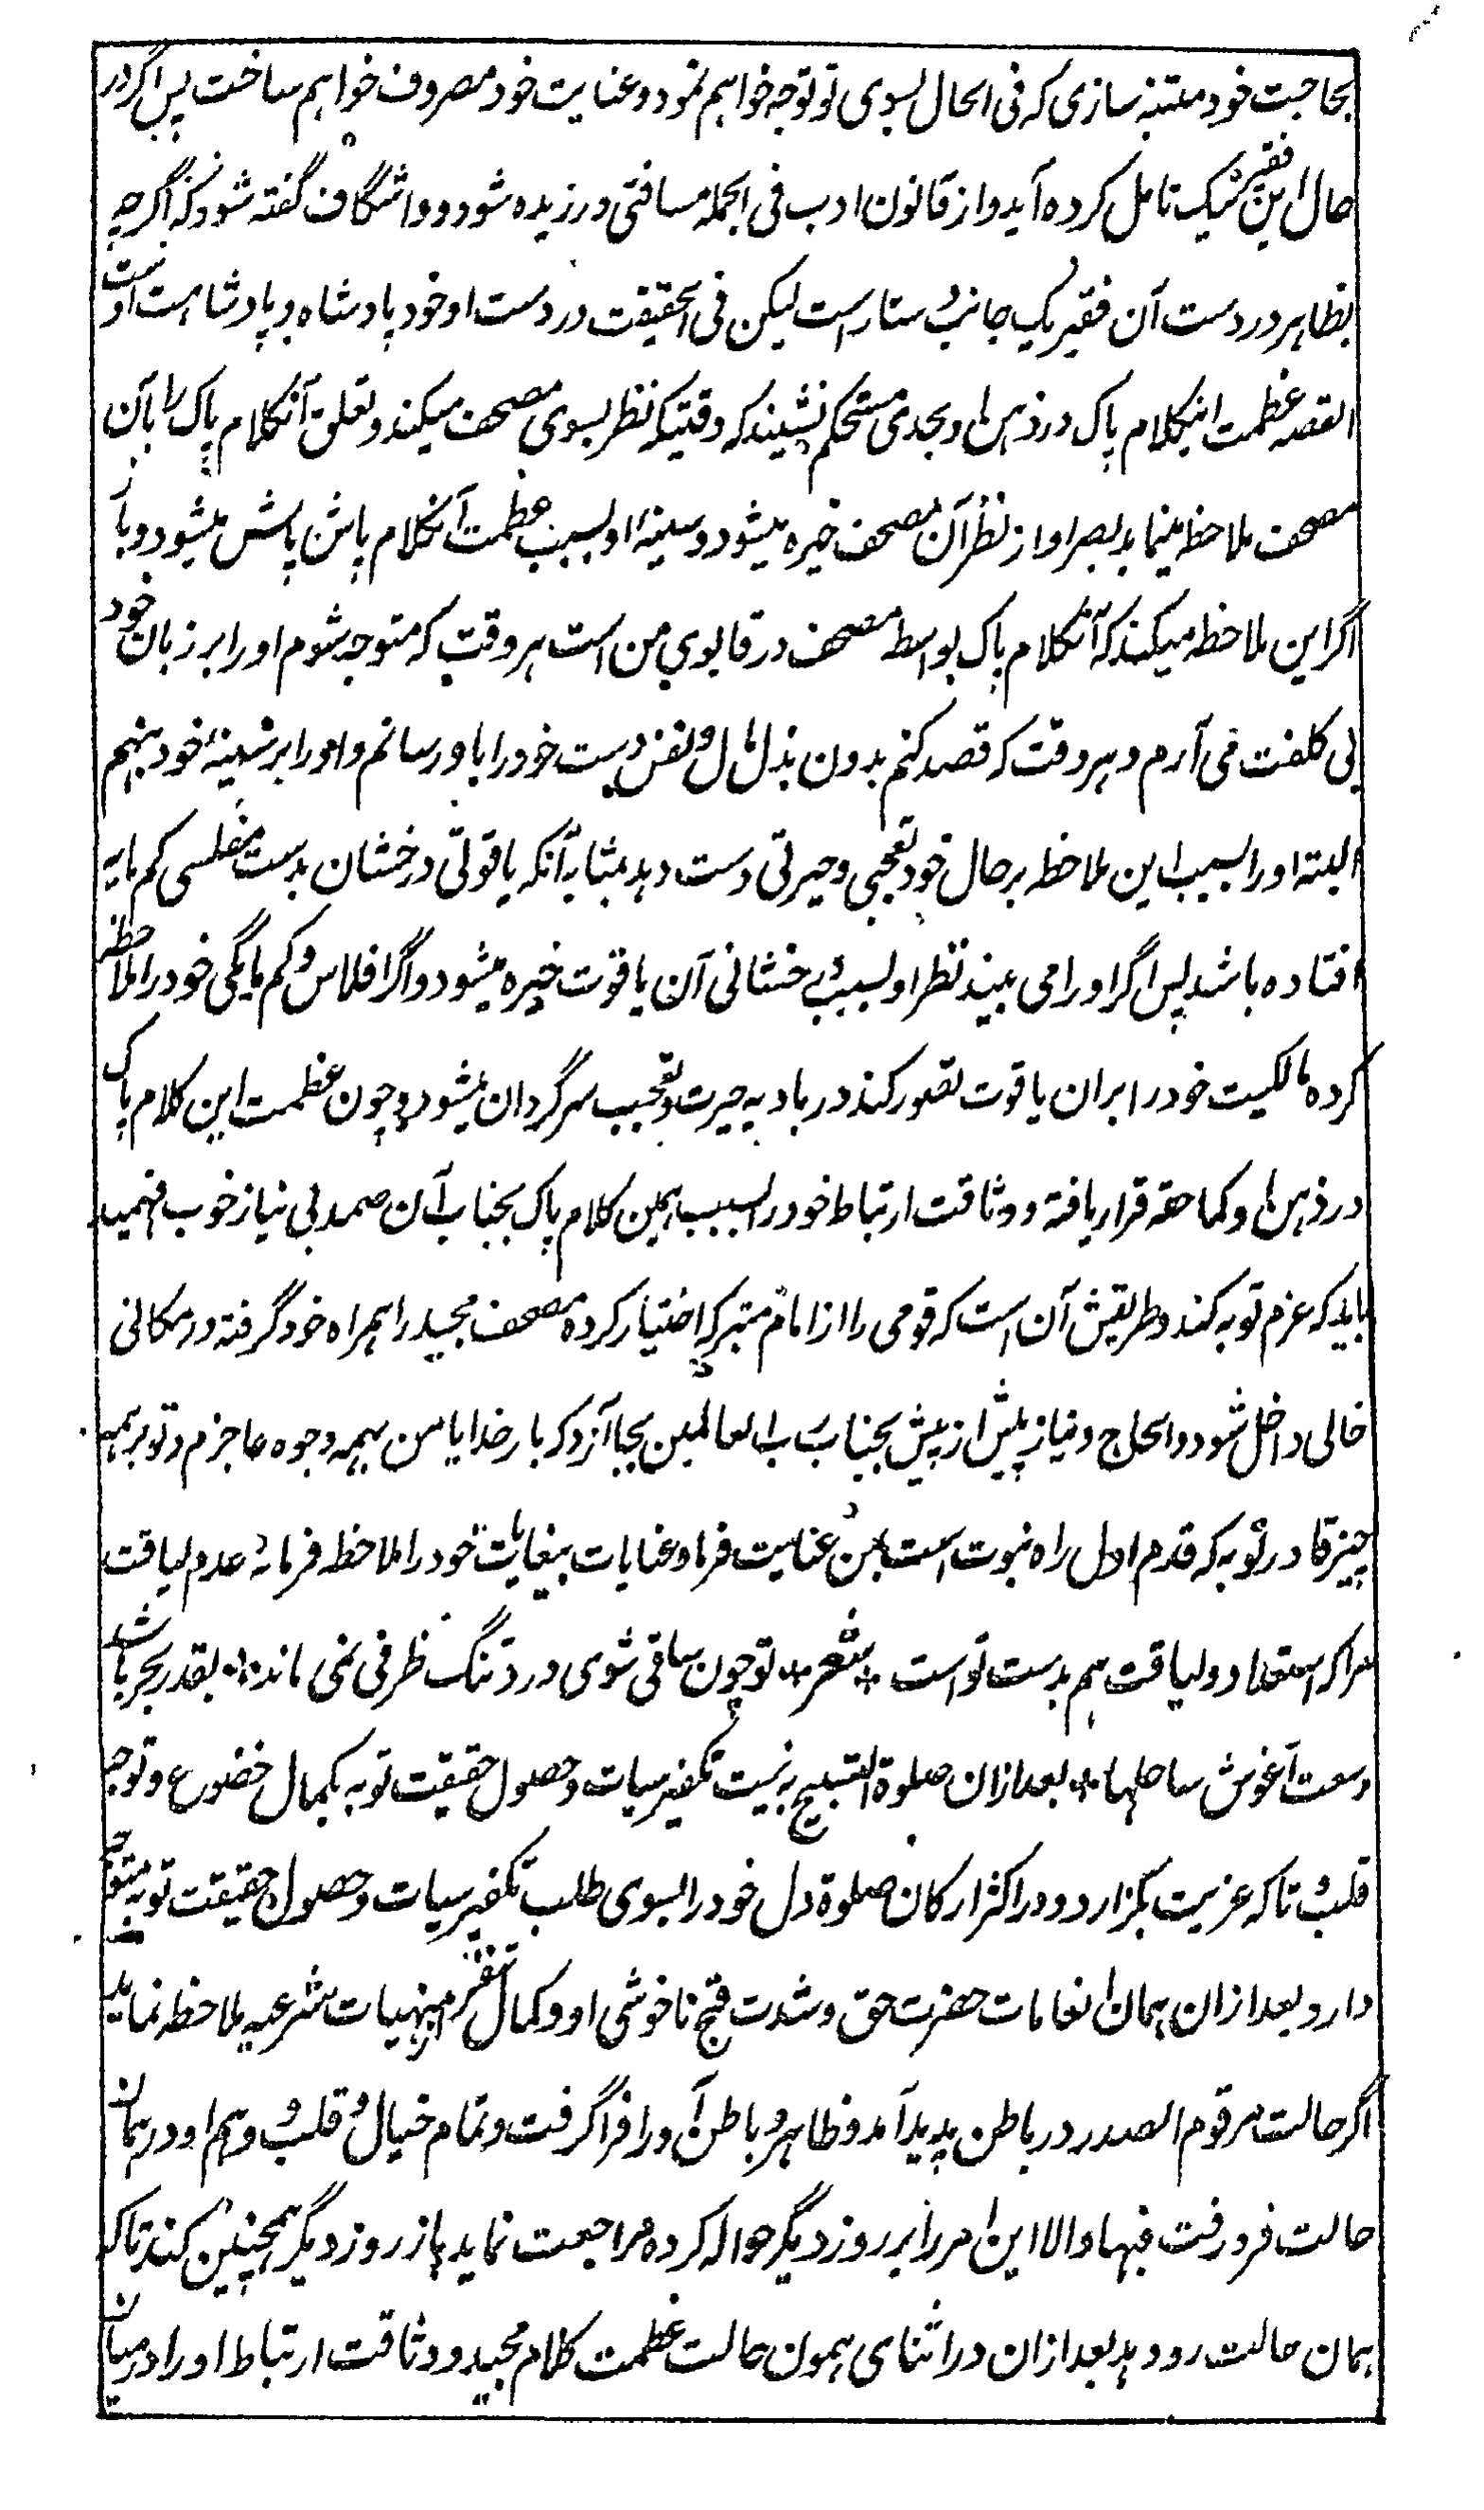 بحاجت خود متنبه سازی که فی الحال بسوی تو توجه خواهم نمود و عنایت خود مصروف خواهم ساخت پس اگر در
حال این فقیر نیک تامل کرده آید و از قانون ادب فی الجمله مسافتی ورزیده شود و واشگاف گفته شود که اگرچه
بظاهر در دست آن فقیر یک جانب دستار است لیکن فی الحقیقت در دست او خود پادشاه و پادشاهت اوست
القصه عظمت اینکلام پاک در ذهن او بحدی مستحکم نشیند که وقتیکه نظر بسوی مصحف میکند و تعلق آنکلام پاک را بآن
مصحف ملاحظه مینماید بصر او از نظر آن مصحف خیره میشود و سینهٔ او بسبب عظمت آنکلام پاش پاش میشود و باز
اگر این ملاحظه میکند که آنکلام پاک بواسطه مصحف در قابوی من است هر وقت که متوجه شوم او را بر زبان خود
بی کلفت می آرم و هر وقت که قصد کنم بدون بذل مال و نفس دست خود را باو رسانم و او را بر سینهٔ خود بنهم
البته او را بسبب این ملاحظه بر حال خود تعجبی و حیرتی دست دهد بمثابه آنکه یاقوتی درخشان بدست مفلسی کم مایه
افتاده باشد پس اگر او را می بیند نظر او بسبب درخشانی آن یاقوت خیره میشود و اگر افلاس و کم مایگی خود را ملاحظه
کرده مالکیت خود را بر آن یاقوت تصور کند در بادیه حیرت و تعجب سرگردان میشود و چون عظمت این کلام پاک
در ذهن او کما حقه قرار یافته و وثاقت ارتباط خود را بسبب همین کلام پاک بجناب آن صمد بی نیاز خوب فهمید
باید که عزم توبه کند و طریقش آن است که قومی را از ایام متبرکه اختیار کرده مصحف مجید را همراه خود گرفته در مکانی
خالی داخل شود و الحاح و نیاز بیش از پیش بجناب رب العالمین بجا آرد که بار خدایا من بهمه وجوه عاجزم و تو بر همه
چیز قادر توبه که قدم اول راه نبوت است بمن عنایت فرما و عنایات بیغایت خود را ملاحظه فرما نه عدم لیاقت
مرا که استعداد و لیاقت هم بدست تو است * شعر * تو چون ساقی شوی درد تنگ ظرفی نمی ماند * بقدر بحر باشد
وسعت آغوش ساحلها * بعد ازان صلوة التسبیح به نیت تکفیر سیات و حصول حقیقت توبه بکمال خضوع و توجه
قلب و تاکد عزیمت بگزارد و در اکثر ارکان صلوة دل خود را بسوی طلب تکفیر سیات و حصول حقیقت توبه متوجه
دارد و بعد ازان همان انعامات حضرت حق و شدت قبح ناخوشی او و کمال تنفر از منهیات شرعیه ملاحظه نماید
اگر حالت مرقوم الصدر در باطن پدید آمد و ظاهر و باطن او را فرا گرفت و تمام خیال و قلب و وهم او در همان
حالت فرو رفت فبها و الا این امر را بر روز دیگر حواله کرده مراجعت نماید باز روز دیگر همچنین کند تا که
همان حالت رو دهد بعد ازان در اثنای همون حالت عظمت کلام مجید و وثاقت ارتباط او را در میان